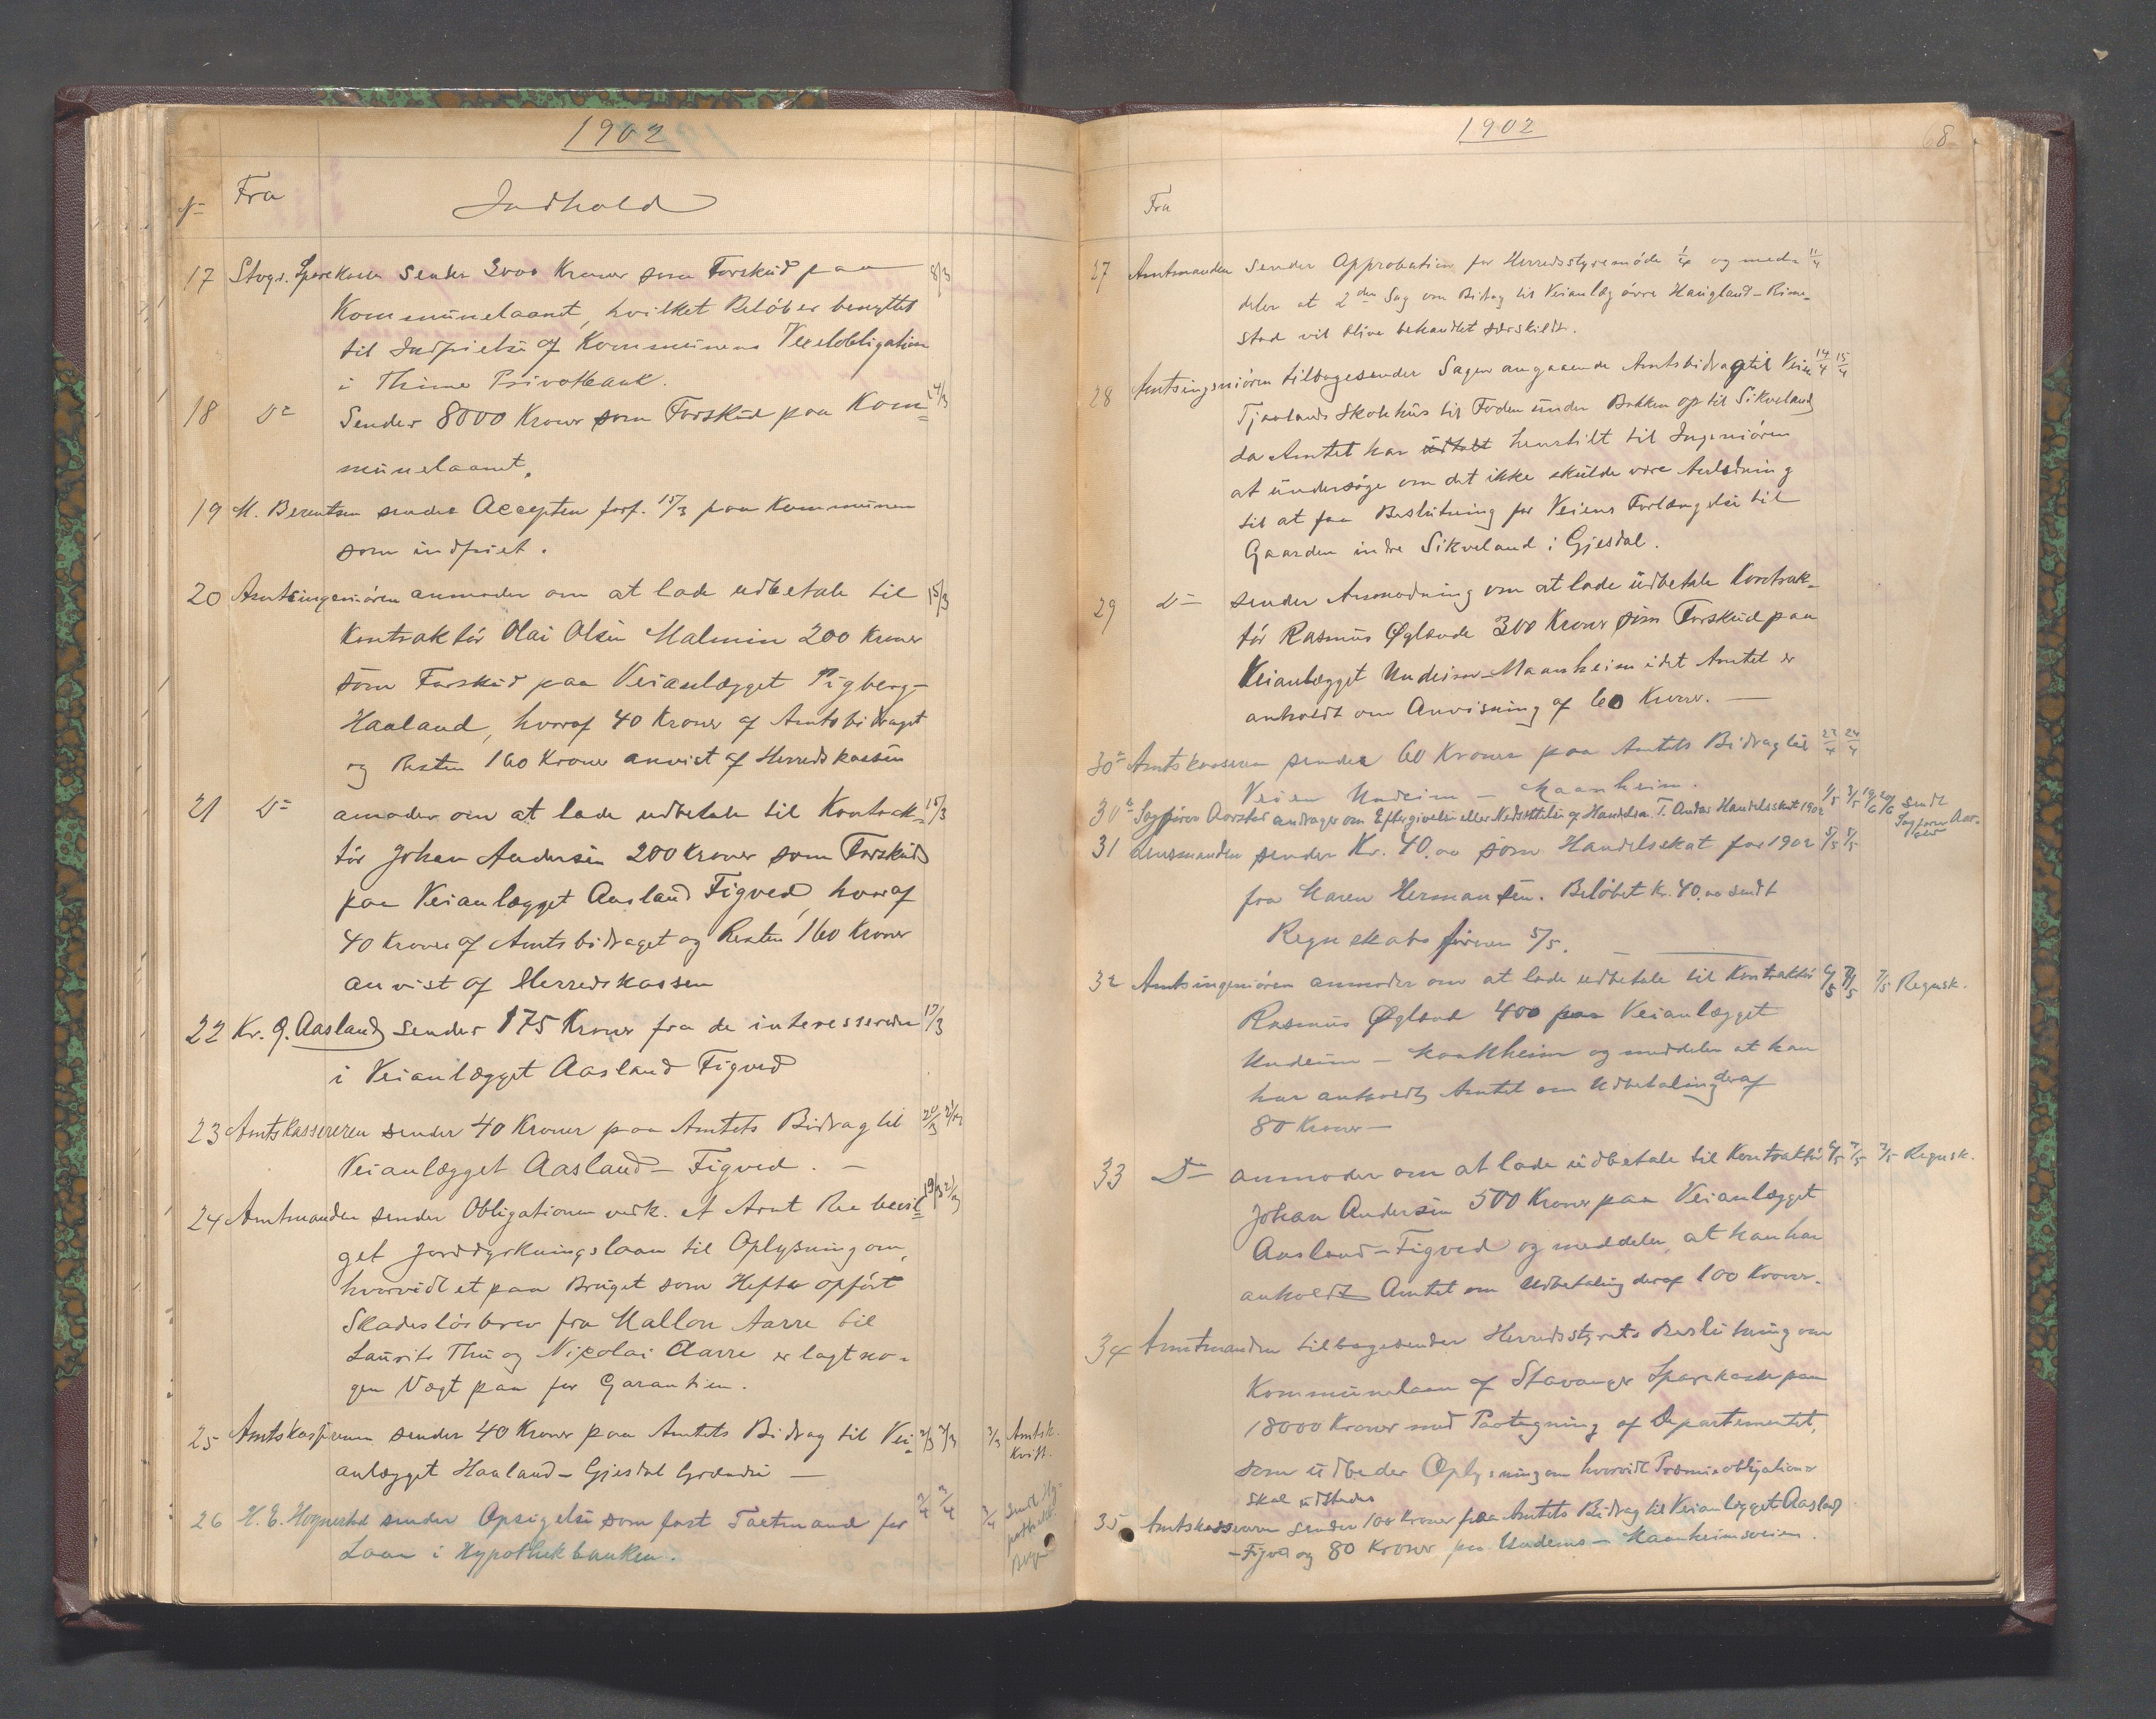 1902
No Fra Indhold
17 Stvgr. Sparekasse sender 3000 Kroner som Forskud paa 8/3
Kommunelaanet, hvilket Beløb er benyttet
til Indfrielse af Kommunens Vexelobligation
i Thime Privatbank.
18 Do Sender 8000 Kroner som Forskud paa Kom= 14/3
munelaanet.
19 M. Berentsen sender Accepten forf. 15/3 paa Kommunen
som indfriet.
20 Amtsingeniøren anmoder om at lade udbetale til 15/3
Kontraktør Olai Olsen Malmin 200 Kroner
som Forskud paa Veianlægget Pigberg-
Haaland, hvoraf 40 Kroner af Amtsbidraget
og Resten 160 Kroner anvist af Herredskassen
21 Do amoder om at lade udbetale til Kontrak- 15/3
tør Johan Andersen 200 Kroner som Forskud
paa Veianlægget Aasland Figved, hvoraf
40 Kroner af Amtsbidraget og Resten 160 Kroner
anvist af Herredskassen
22 Kr. G. Aasland sender 175 Kroner fra de interesserede 17/3
i Veianlægget Aasland Figved
23 Amtskassereren sender 40 Kroner paa Amtets Bidrag til 20/3 21/3
Veianlægget Aasland - Figved. -
24 Amtmanden sender Obligationen vedk. et Arnt Ree bevil= 19/3 21/3
get Jorddyrkningslaan til Oplysning om,
hvorvidt et paa Bruget som Hefte opført
Skadesløsbrev fra Mallon Aarre til
Laurits Thu og Nicolai Aarre er lagt no-
gen Vægt paa for Garantien.
25 Amtskassereren sender 40 Kroner paa Amtets Bidrag til Vei- 2/3 3/3 3/3 Amtsk.
anlægget Haaland - Gjesdal Grændse - Kvitt.
26 H. E. Hognestad sender Opsigelse som fast Taxtmand for 2/4 3/4 3/4 Sendt
Laan i Hypothekbanken.
1902 68
Fra
27 Amtmanden sender Approbation for Herredsstyremøde 1/4 og med= 11/4
deler at 2den Sag om Bidrag til Veianlæg øvre Haugland - Rime-
stad vil blive behandlet særskildt.
28 Amtsingeniøren tilbagesender Sagen angaaende Amtsbidrag til Veien 14/4 15/4
Tjaalands Skolehus til Foden under Bakken op til Sikveland
da Amtet har udtalt henstilt til Ingeniøren
at undersøge om det ikke skulde være Anledning
til at faa Beslutning for Veiens Forlængelse til
Gaarden indre Sikveland i Gjesdal.
29 Do sender Anmodning om at lade udbetale Kontrak-
tør Rasmus Øglænde 300 Kroner som Forskud paa
Veianlægget Undeim - Maanheim idet Amtet er
anholdt om Anvisning af 60 Kroner. -
30a Amtskassereren sender 60 Kroner paa Amtets Bidrag til 23/4 24/4
Veien Undeim - Maanheim.
30b Sagfører Aarstad andrager om Eftergivelse eller Nedsættelse af Handelsm. T. Andas Handelsskat 1902 1/5 3/5 19/6 20/6 Sendt Sagfører Aar-
stad
31 Lensmanden sender Kr. 40.00 som Handelsskat for 1902 5/5 5/5
fra Maren Hermansen. Beløbet Kr. 40.00 sendt
Regnskabsføreren 5/5.
32 Amtsingeniøren anmoder om at lade udbetale til Kontraktør 6/5 7/5 7/5 Regnsk.
Rasmus Øglænd 400 paa Veianlægget
Undeim - Maanheim og meddeler at han
har anholdt Amtet om Udbetaling deraf
80 Kroner -
33 Do anmoder om at lade udbetale til Kontraktør 6/5 7/5 7/5 Regnsk.
Johan Andersen 500 Kroner paa Veianlægget
Aasland - Figved og meddeler, at han har
anholdt Amtet om Udbetaling deraf 100 Kroner.
34 Amtmanden tilbagesender Herredsstyrets Beslutning om
Kommunelaan af Stavanger Sparekasse paa
18000 Kroner med Paategning af Departementet,
som udbeder Oplysning om hvorvidt Præmieobligationer
skal udstedes
35 Amtskassereren sender 100 Kroner paa Amtets Bidrag til Veianlægget Aasland
- Figved og 80 Kroner paa Undeims - Maanheimsveien.